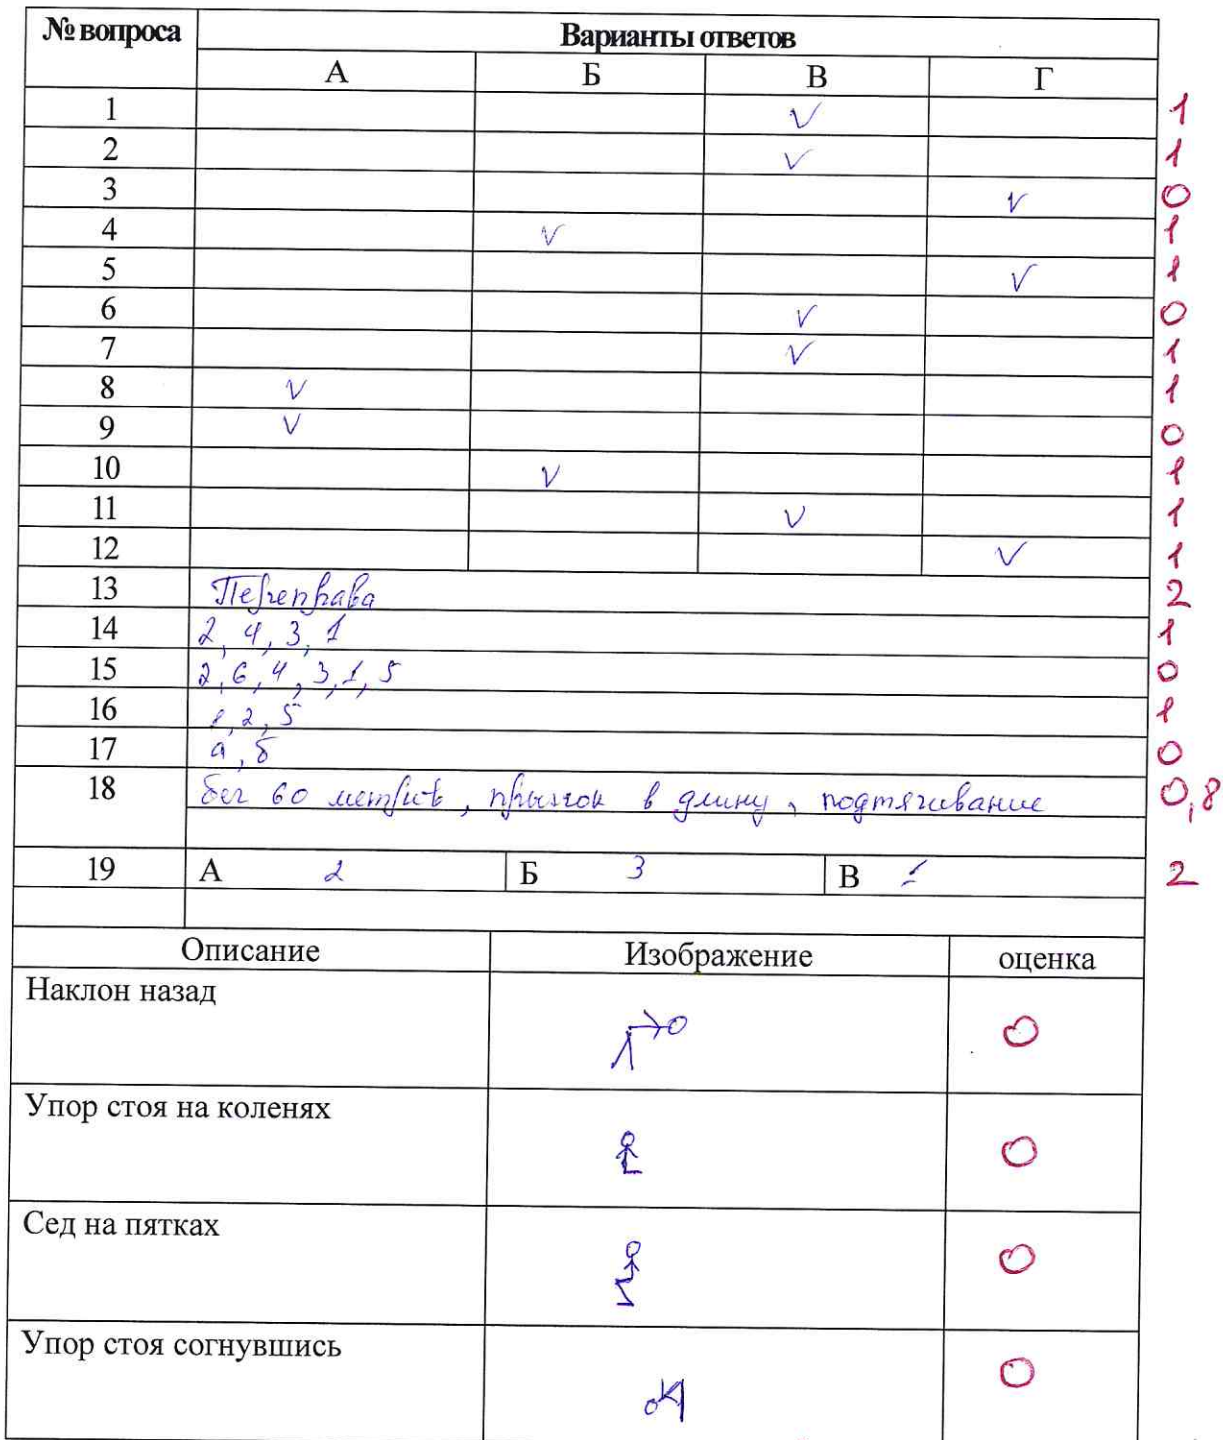 № вопроса Варианты ответов
А Б В Г
1 V 1
2 V 1
3 V 0
4 V 1
5 V 1
6 V 0
7 V 1
8 V 1
9 V 0
10 V 1
11 V 1
12 V 1
13 Переправа 2
14 2, 4, 3, 1 1
15 2, 6, 4, 3, 1, 5 0
16 1, 2, 5 1
17 а, б 0
18 бег 60 метров, прыжок в длину, подтягивание 0,8
19 А 2 Б 3 В 1 2
Описание Изображение оценка
Наклон назад 0
Упор стоя на коленях 0
Сед на пятках 0
Упор стоя согнувшись 0